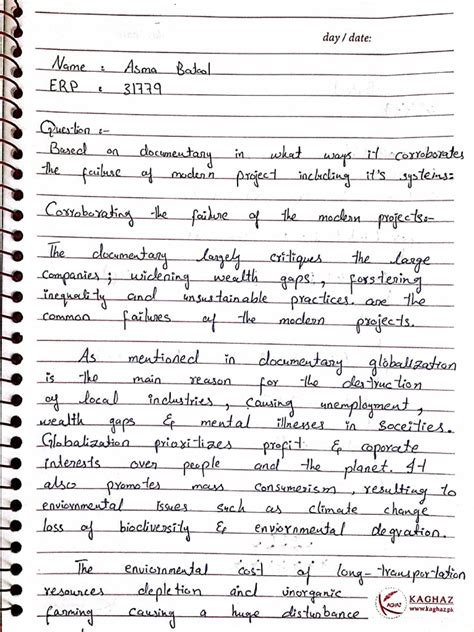 day / date:
Name : Asma Batool
ERP : 31779
Question :-
Based on documentary in what ways it corroborates
the failure of modern project including it's systems:
Corroborating the failure of the modern projects:-
The documentary largely critiques the large
companies; widening wealth gaps, forstering
inequality and unsustainable practices. are the
common failures of the modern projects.
As mentioned in documentary globalization
is the main reason for the destruction
of local industries, causing unemployment,
wealth gaps & mental illnesses in soceities.
Globalization prioritizes profit & coporate
interests over people and the planet. It
also promotes mass consumerism, resulting to
enviornmental issues such as climate change
loss of biodiversity & enviornmental degration.
The enviornmental cost of long-transportation
resources depletion and inorganic
farming causing a huge disturbance
KAGHAZ
www.kaghaz.pk